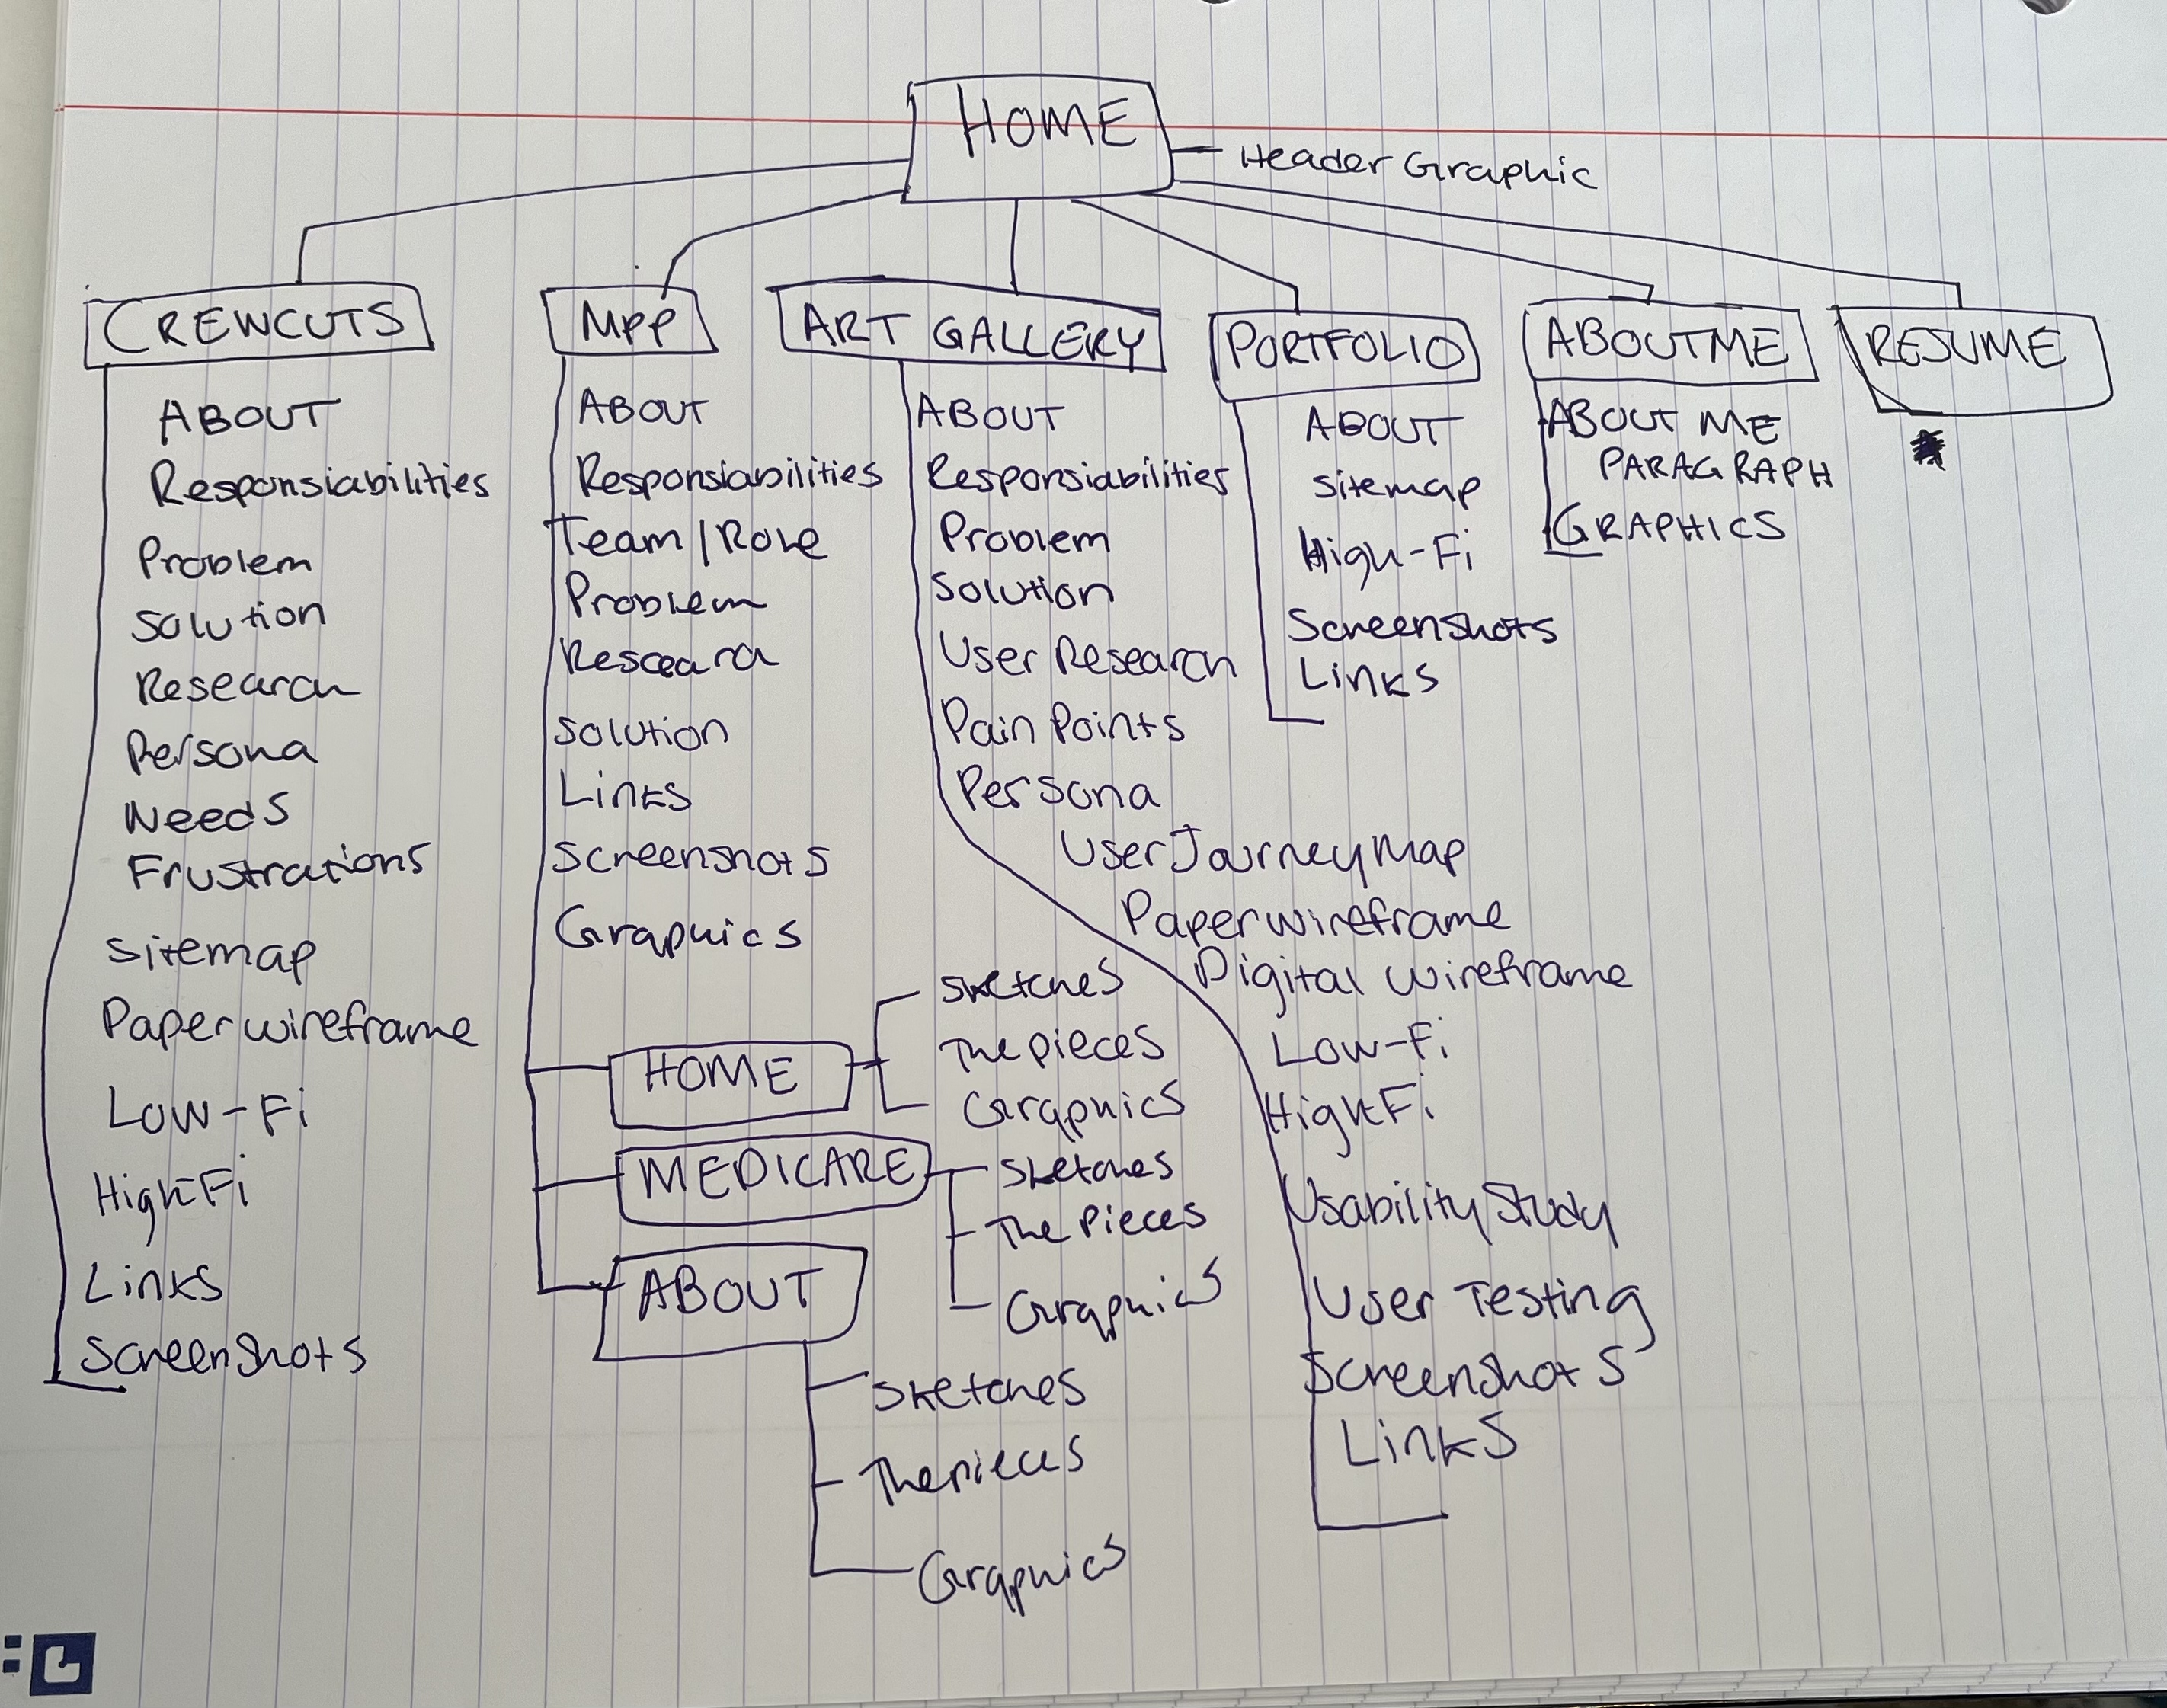 HOME
Header Graphic
CREWCUTS
ABOUT
Responsiabilities
Problem
Solution
Research
Persona
Needs
Frustrations
Sitemap
Paper wireframe
Low-Fi
High-Fi
Links
Screenshots
MPP
ABOUT
Responsiabilities
Team/Role
Problem
Solution
Links
Screenshots
Graphics
HOME
Sketches
The pieces
Graphics
MEDICARE
Sketches
The Pieces
Graphics
ABOUT
Sketches
The pieces
Graphics
ART GALLERY
ABOUT
Responsiabilities
Problem
Solution
User Research
Pain Points
Persona
User Journey Map
Paper wireframe
Digital wireframe
Low-Fi
High-Fi
Usability Study
User Testing
Screenshots
Links
PORTFOLIO
ABOUT
Sitemap
High-Fi
Screenshots
Links
ABOUT ME
ABOUT ME
PARAGRAPH
GRAPHICS
RESUME